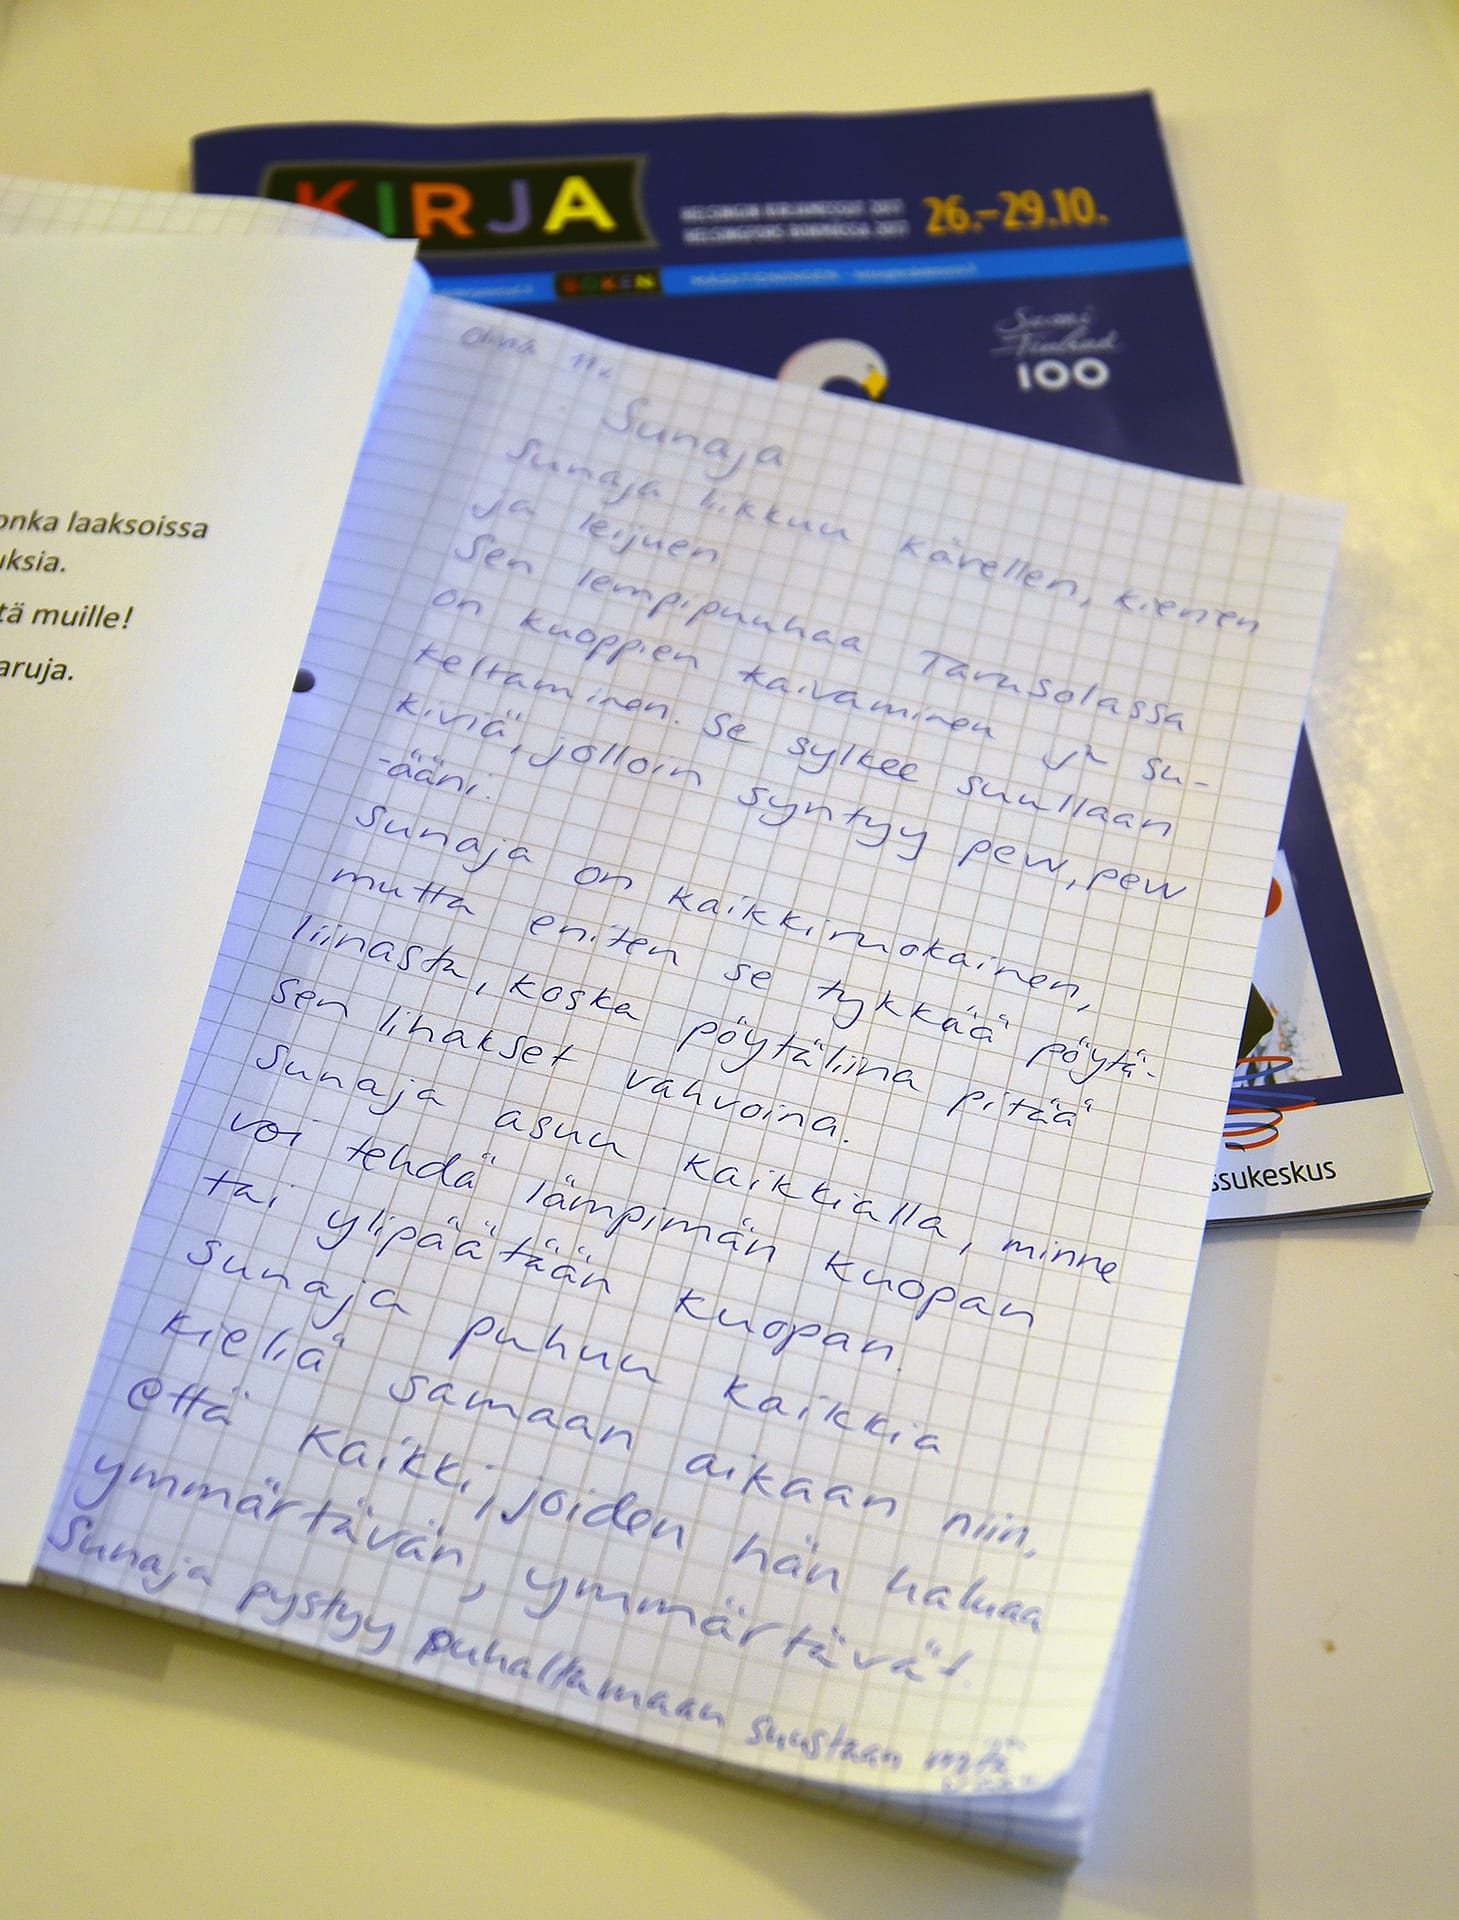 KIRJA
HELSINGIN KIRJAMESSUT 2017
HELSINGFORS BOKMÄSSA 2017
26.–29.10.
BOKEN
MÄSSTIDNINGEN
Suomi
Finland
100
ssukeskus
onka laaksoissa
uksia.
tä muille!
aruja.
Sunaja
Sunaja liikkuu kävellen, kierien
ja leijuen.
Sen lempipuuhaa Tarusolassa
on kuoppien kaivaminen ja su-
keltaminen. Se sylkee suullaan
kiviä, jolloin syntyy pew, pew
-ääni.
Sunaja on kaikkiruokainen,
mutta eniten se tykkää pöytä-
liinasta, koska pöytäliina pitää
sen lihakset vahvoina.
Sunaja asuu kaikkialla, minne
voi tehdä lämpimän kuopan
tai ylipäätään kuopan.
Sunaja puhuu kaikkia
kieliä samaan aikaan niin,
että kaikki, joiden hän haluaa
ymmärtävän, ymmärtävät.
Sunaja pystyy puhaltamaan suustaan